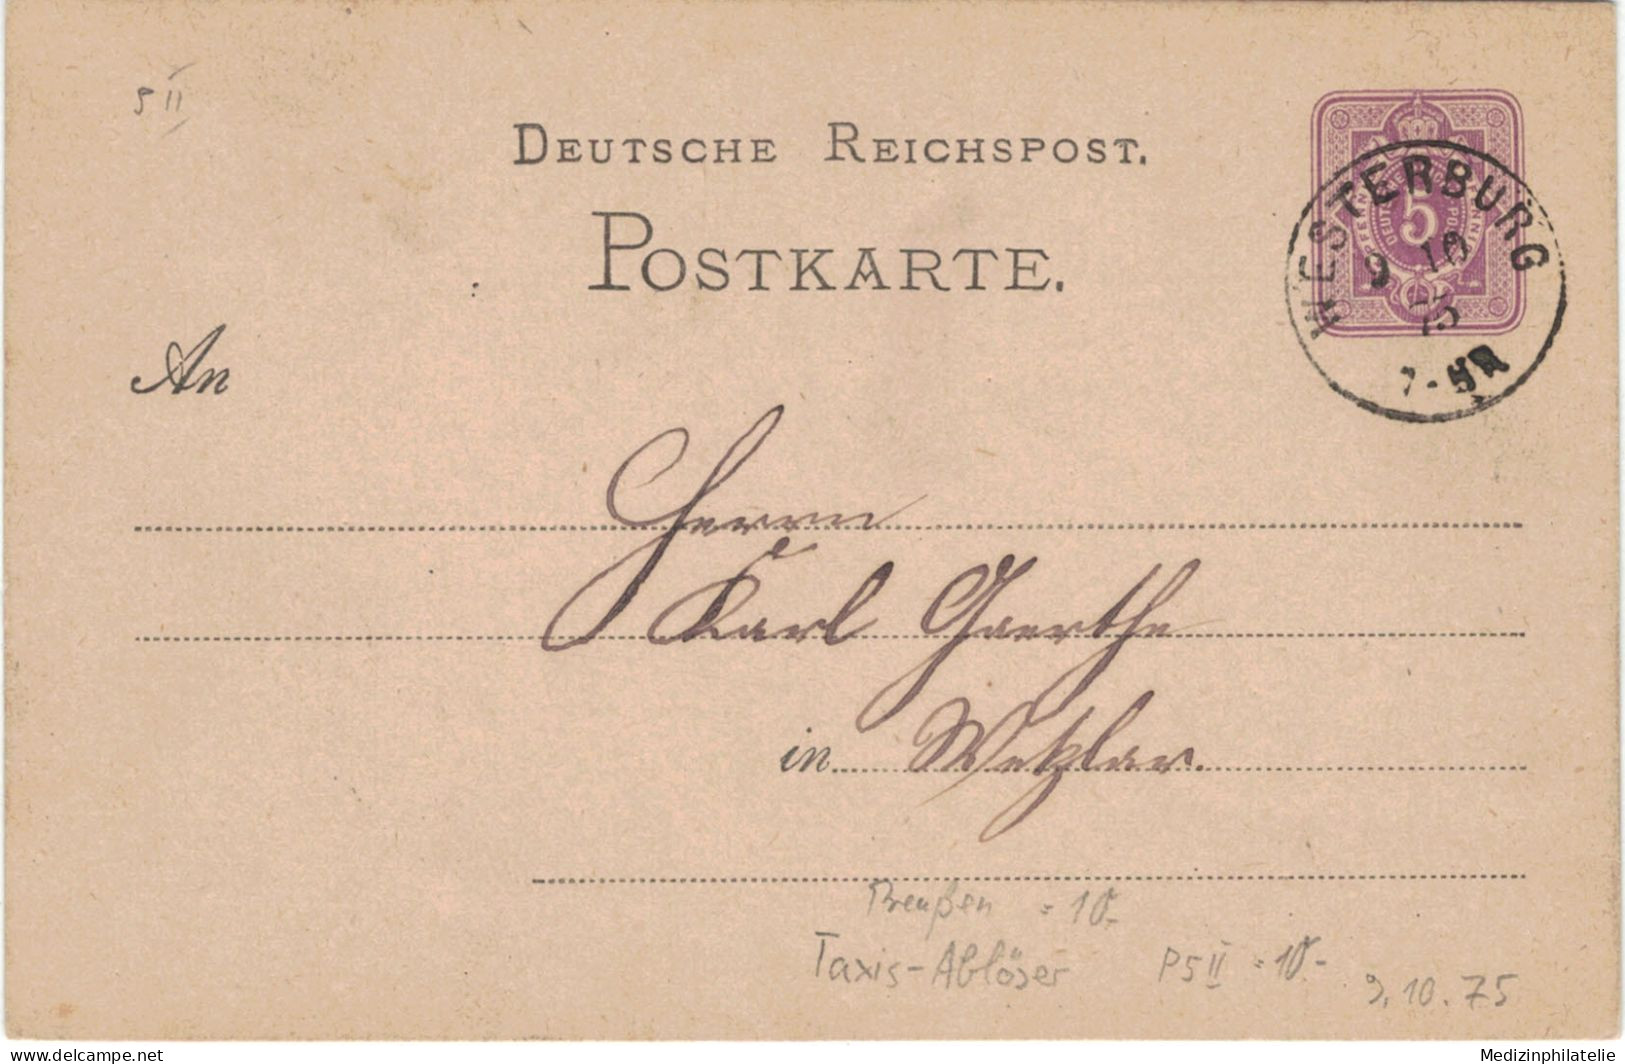 5 II
DEUTSCHE REICHSPOST.
POSTKARTE.
5
WESTERBURG
9 10
75
An
Herrn
Karl Gaerthe
in Wetzlar.
Preußen = 10.-
Taxis-Ablöser P5 II = 10.-
9.10.75
www.delcampe.net
Medizinphilatelie